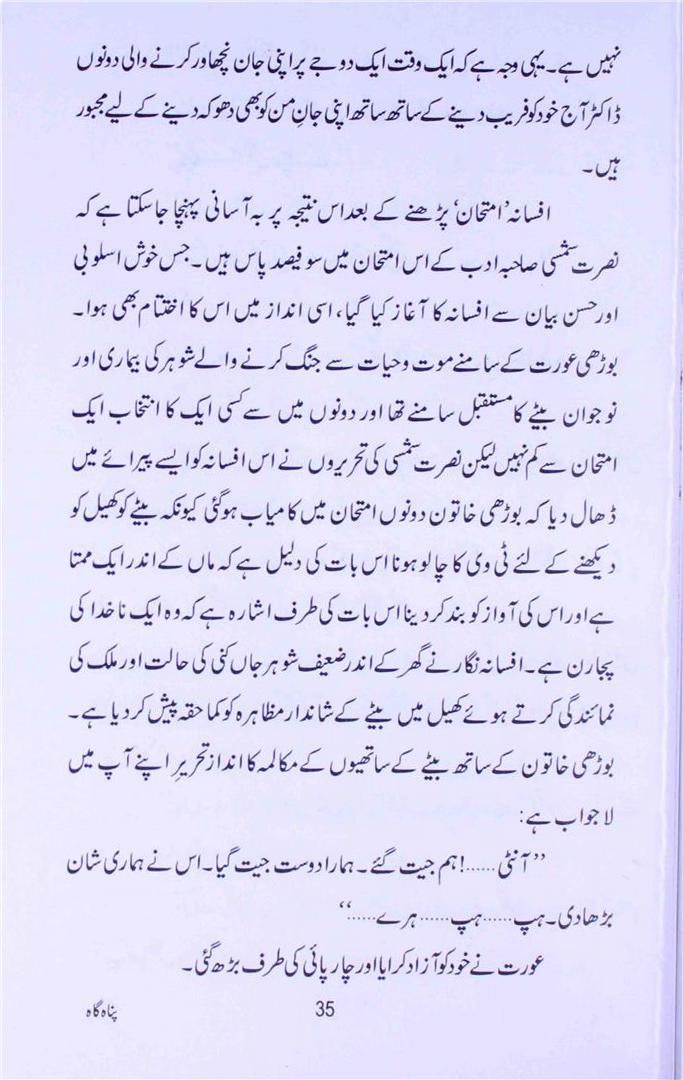 نہیں ہے۔ یہی وجہ ہے کہ ایک وقت ایک دوجے پر اپنی جان نچھاور کرنے والی دونوں
ڈاکٹر آج خود کو فریب دینے کے ساتھ ساتھ اپنی جانِ من کو بھی دھوکہ دینے کے لیے مجبور
ہیں۔
افسانہ ’امتحان‘ پڑھنے کے بعد اس نتیجہ پر بہ آسانی پہنچا جاسکتا ہے کہ
نصرت شمسی صاحبہ ادب کے اس امتحان میں سو فیصد پاس ہیں۔ جس خوش اسلوبی
اور حسن بیان سے افسانہ کا آغاز کیا گیا، اسی انداز میں اس کا اختتام بھی ہوا۔
بوڑھی عورت کے سامنے موت و حیات سے جنگ کرنے والے شوہر کی بیماری اور
نوجوان بیٹے کا مستقبل سامنے تھا اور دونوں میں سے کسی ایک کا انتخاب ایک
امتحان سے کم نہیں لیکن نصرت شمسی کی تحریروں نے اس افسانہ کو ایسے پیرائے میں
ڈھال دیا کہ بوڑھی خاتون دونوں امتحان میں کامیاب ہوگئی کیونکہ بیٹے کو کھیل کو
دیکھنے کے لئے ٹی وی کا چالو ہونا اس بات کی دلیل ہے کہ ماں کے اندر ایک ممتا
ہے اور اس کی آواز کو بند کردینا اس بات کی طرف اشارہ ہے کہ وہ ایک ناخدا کی
پجارن ہے۔ افسانہ نگار نے گھر کے اندر ضعیف شوہر جاں کنی کی حالت اور ملک کی
نمائندگی کرتے ہوئے کھیل میں بیٹے کے شاندار مظاہرہ کو کماحقہ پیش کردیا ہے۔
بوڑھی خاتون کے ساتھ بیٹے کے ساتھیوں کے مکالمہ کا اندازِ تحریر اپنے آپ میں
لاجواب ہے:
’’آنٹی......! ہم جیت گئے۔ ہمارا دوست جیت گیا۔ اس نے ہماری شان
بڑھادی۔ ہپ...... ہپ...... ہرے......‘‘
عورت نے خود کو آزاد کرایا اور چارپائی کی طرف بڑھ گئی۔
35 پناہ گاہ